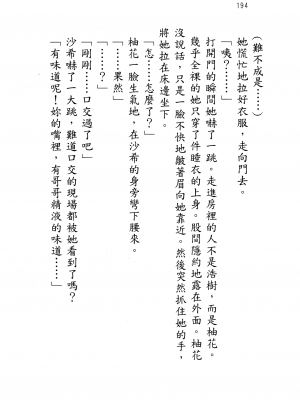 194
（難不成是……）
她慌忙地拉好衣服，走向門去。
「咦？……」
打開門的瞬間她嚇了一跳。走進房裡的人不是浩樹，而是柚花。
幾乎全裸的她只穿了件睡衣的上身。股間隱約地露在外面。柚花
沒說話，只是一臉不快地皺著眉向她靠近。然後突然抓住她的手，
將她拉在床邊坐下。
「怎……怎麼了？」
「……果然。」
柚花一臉生氣地，在沙希的身旁彎下腰來。
「……？」
「剛剛……口交過了吧。」
沙希嚇了一大跳，難道口交的現場都被她看到了嗎？
「有味道呢！妳的嘴裡，有哥哥精液的味道……」